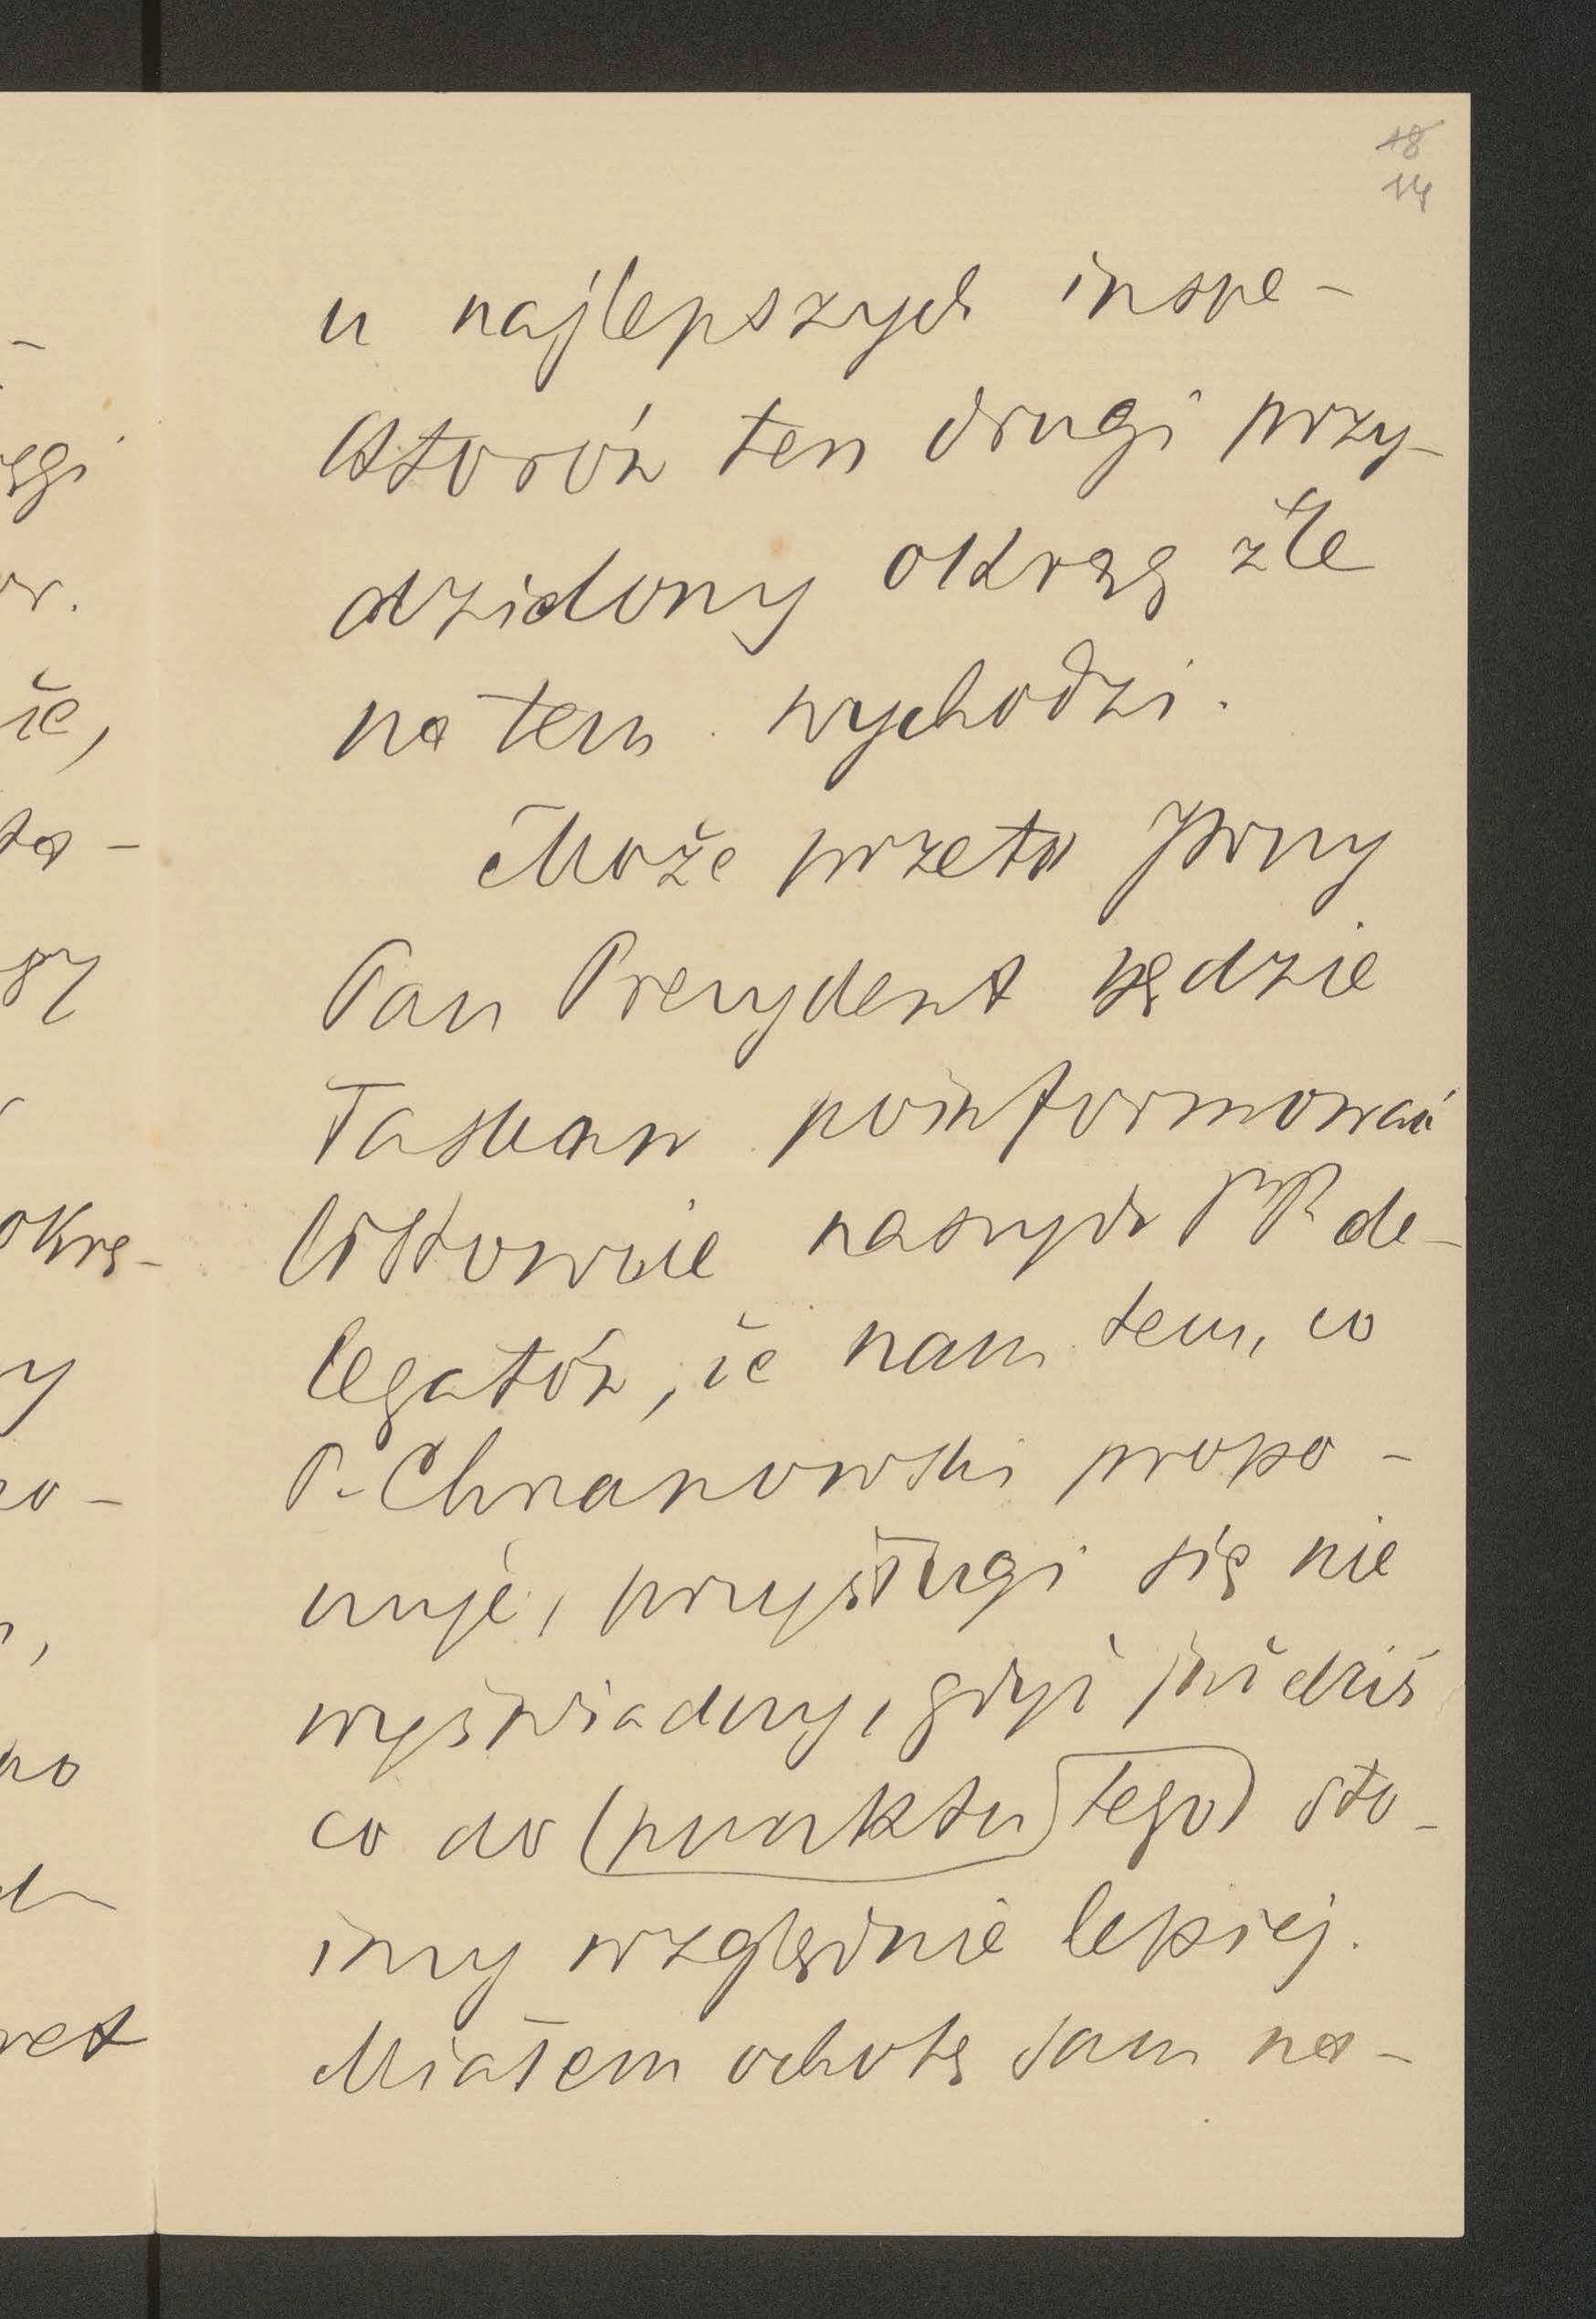 18
14
u najlepszych inspe-
ktorów ten drugi przy-
dzielony okręg źle
na tem wychodzi.
Może przeto JWny
Pan Prezydent będzie
łaskaw poinformować
listownie naszych PP de-
legatów, że nam tem, co
P. Chranowski propo-
nuje, przysługi się nie
wyświadczy, gdyż już dziś
co do (punktu) tego) sto-
imy względnie lepiej.
Miałem ochotę sam na-
ęgi
or.
że,
ta-
okrę-
y
no-
no
ret